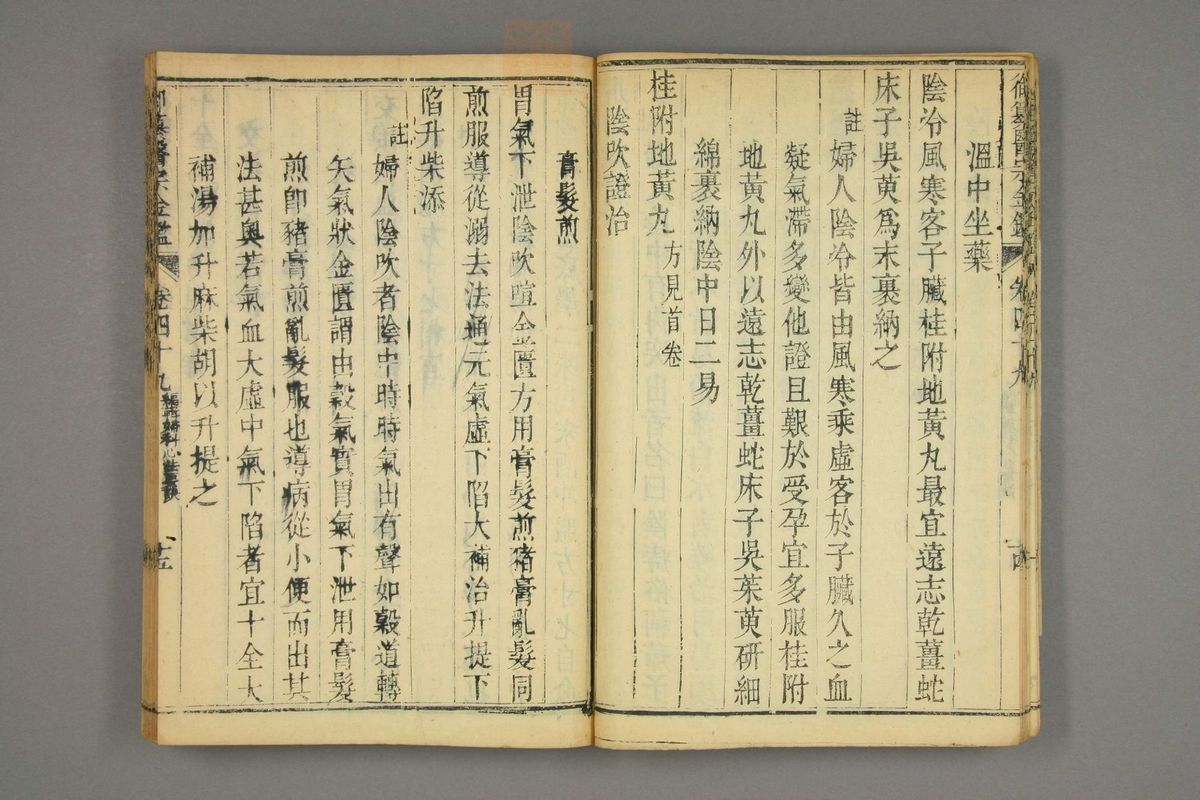 御纂醫宗金鑑 卷四十九
十四
溫中坐藥
陰冷風寒客子臟桂附地黃丸最宜遠志乾薑蛇
床子吳萸爲末裹納之
註婦人陰冷皆由風寒乘虛客於子臟久之血
凝氣滯多變他證且艱於受孕宜多服桂附
地黃丸外以遠志乾薑蛇床子吳茱萸研細
綿裹納陰中日二易
桂附地黃丸方見首卷
陰吹證治
膏髮煎
胃氣下泄陰吹喧金匱方用膏髮煎猪膏亂髮同
煎服導從溺去法通元氣虛下陷大補治升提下
陷升柴添
註婦人陰吹者陰中時時氣出有聲如穀道轉
矢氣狀金匱謂由穀氣實胃氣下泄用膏髮
煎卽豬膏煎亂髮服也導病從小便而出其
法甚奥若氣血大虛中氣下陷者宜十全大
補湯加升麻柴胡以升提之
御纂醫宗金鑑 卷四十九 編輯婦科心法要訣
十五